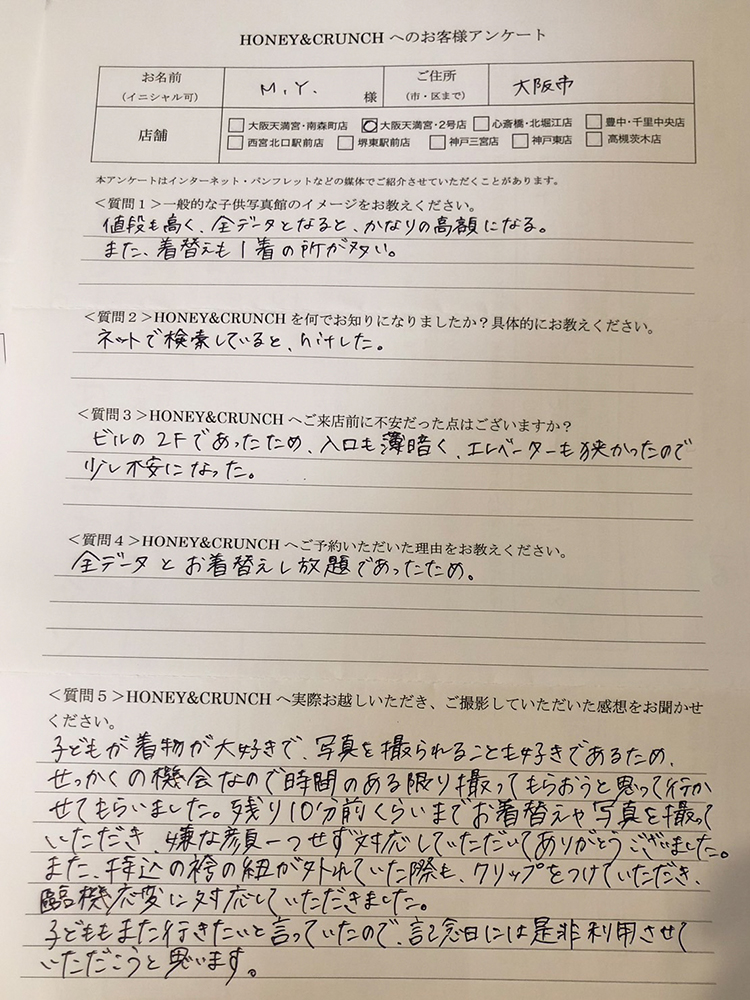 HONEY&CRUNCH へのお客様アンケート
お名前 (イニシャル可) M.Y. 様 ご住所 (市・区まで) 大阪市
店舗 □大阪天満宮・南森町店 ☑大阪天満宮・2号店 □心斎橋・北堀江店 □豊中・千里中央店
□西宮北口駅前店 □堺東駅前店 □神戸三宮店 □神戸東店 □高槻茨木店
本アンケートはインターネット・パンフレットなどの媒体でご紹介させていただくことがあります。
<質問1>一般的な子供写真館のイメージをお教えください。
値段も高く、全データとなると、かなりの高額になる。
また、着替えも1着の所が多い。
<質問2>HONEY&CRUNCH を何でお知りになりましたか?具体的にお教えください。
ネットで検索していると、hitした。
<質問3>HONEY&CRUNCH へご来店前に不安だった点はございますか?
ビルの2Fであったため、入口も薄暗く、エレベーターも狭かったので
少し不安になった。
<質問4>HONEY&CRUNCH へご予約いただいた理由をお教えください。
全データとお着替えし放題であったため。
<質問5>HONEY&CRUNCH へ実際お越しいただき、ご撮影していただいた感想をお聞かせ
ください。
子どもが着物が大好きで、写真を撮られることも好きであるため、
せっかくの機会なので時間のある限り撮ってもらおうと思って行か
せてもらいました。残り10分前くらいまでお着替えや写真を撮って
いただき、嫌な顔一つせず対応していただいてありがとうございました。
また、持込の袴の紐が外れていた際も、クリップをつけていただき、
臨機応変に対応していただきました。
子どももまた行きたいと言っていたので、記念日には是非利用させて
いただこうと思います。